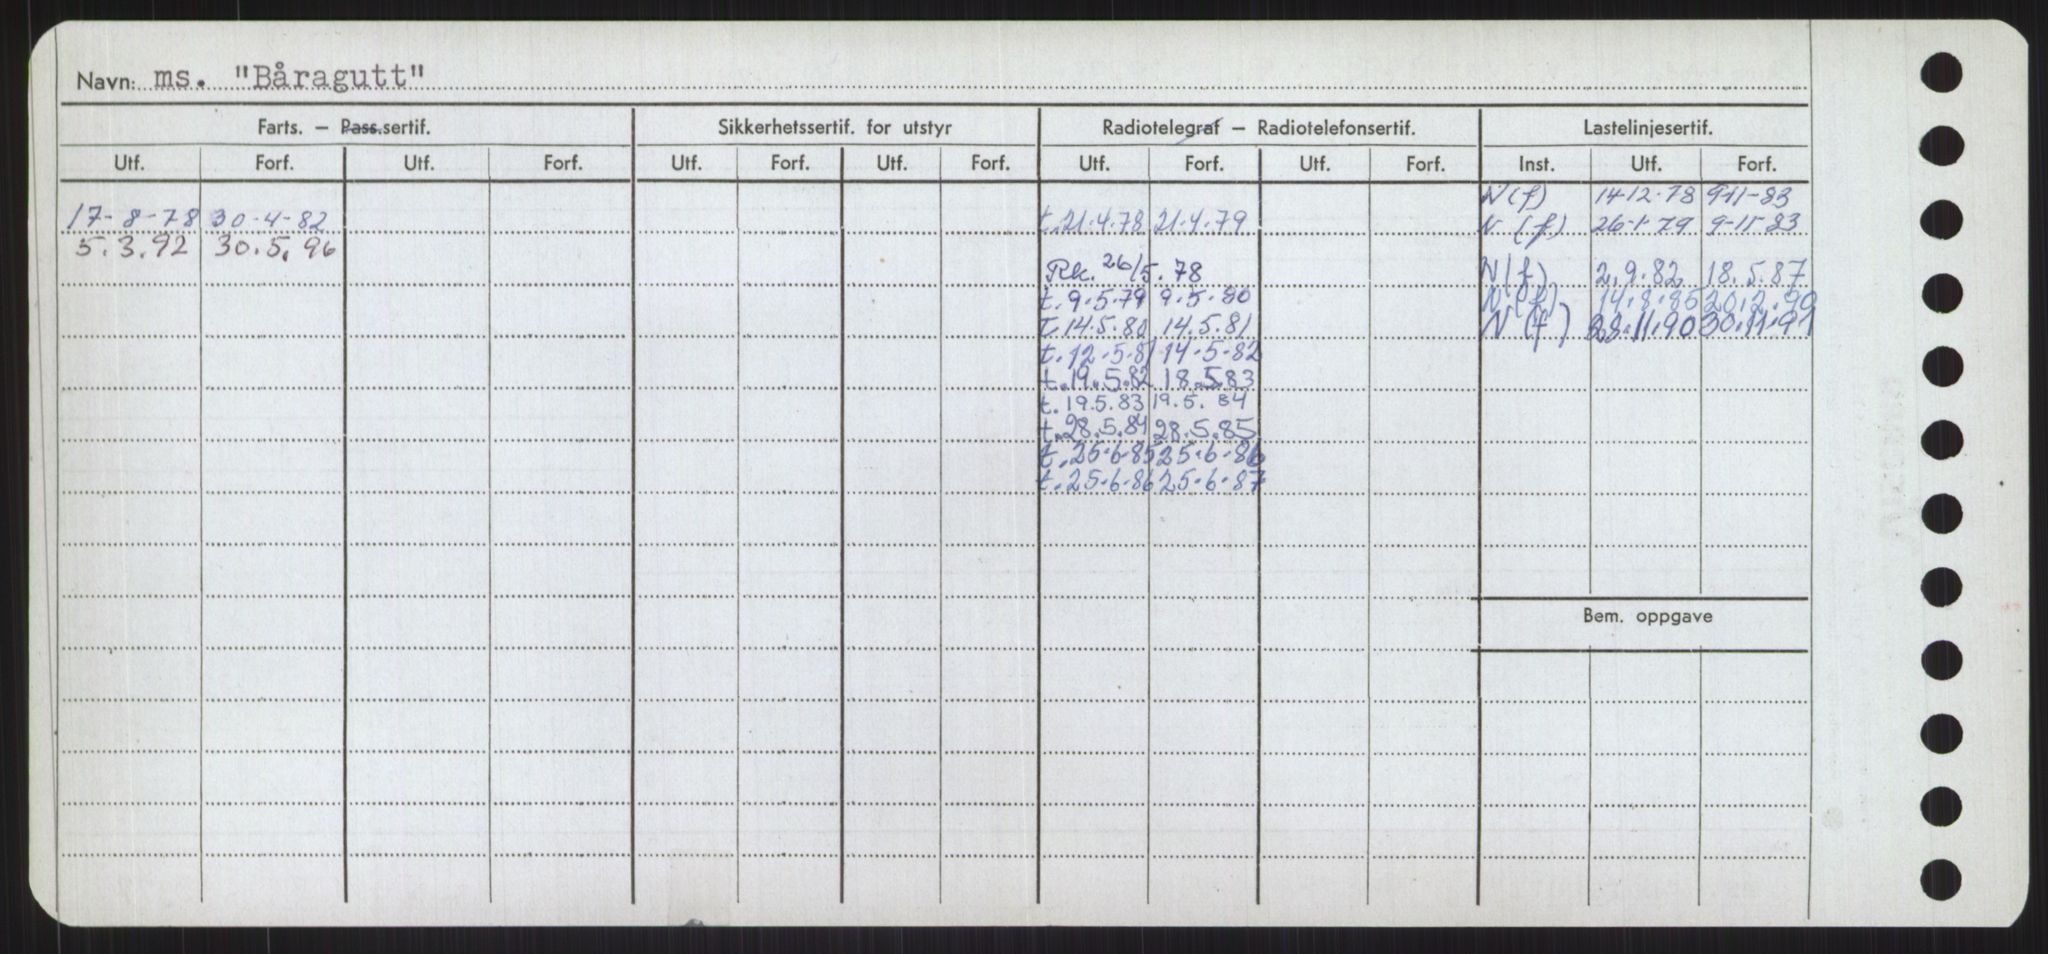 Navn: ms. "Båragutt"
Farts. — Pass.sertif. Sikkerhetssertif. for utstyr Radiotelegraf — Radiotelefonsertif. Lastelinjesertif.
Utf. Forf. Utf. Forf. Utf. Forf. Utf. Forf. Utf. Forf. Utf. Forf. Inst. Utf. Forf.
N(f) 14-12-78 9-11-83
17-8-78 30-4-82 t.21.4.78 21.4.79 N (f) 26-1-79 9-11-83
5.3.92 30.5.96
Rk. 26/5.78 N(f) 2.9.82 18.5.87
t.9.5.79 9.5.80 N(f) 14.8.85 20.2.90
T.14.5.80 14.5.81 N(f) 28.11.90 30.11.91
t.12.5.81 14.5.82
t.19.5.82 18.5.83
t.19.5.83 19.5.84
t.28.5.84 28.5.85
t.25.6.85 25.6.86
t.25.6.86 25.6.87
Bem. oppgave